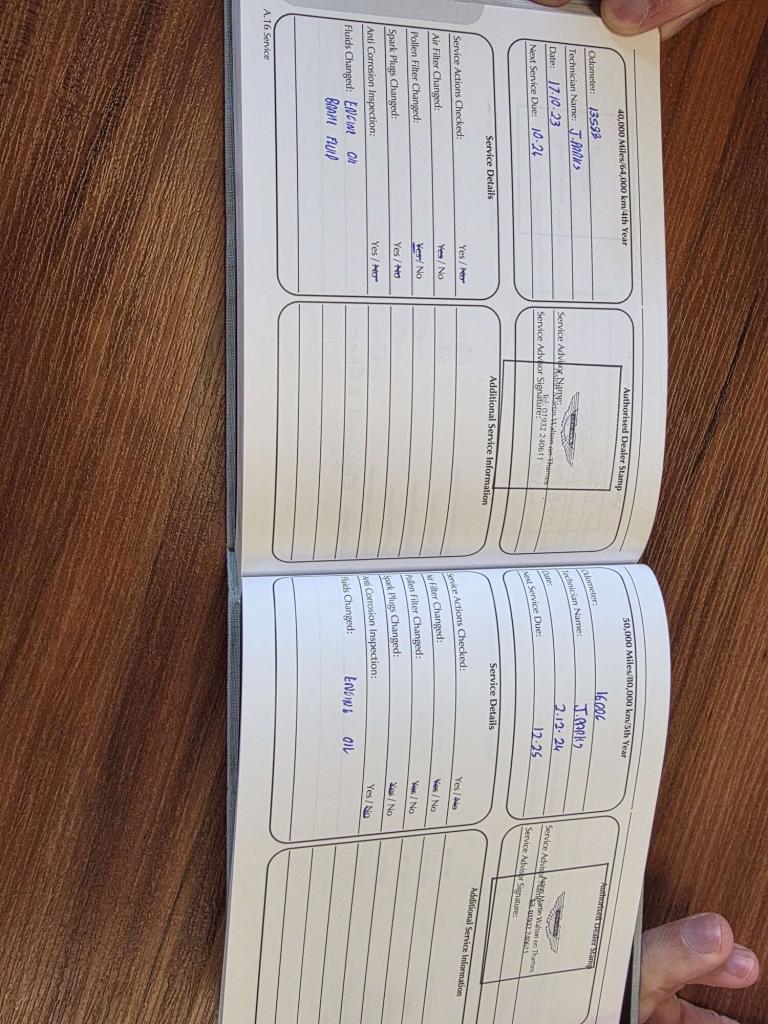 40,000 Miles/64,000 km/4th Year
Odometer: 13583
Technician Name: J. PARKS
Date: 17.10.23
Next Service Due: 10.24
Authorised Dealer Stamp
Service Advisor Name:
Aston Martin Walton on Thames
Tel: 01932 240611
Service Advisor Signature:
Service Details
Service Actions Checked: Yes / No
Air Filter Changed: Yes / No
Pollen Filter Changed: Yes / No
Spark Plugs Changed: Yes / No
Anti Corrosion Inspection: Yes / No
Fluids Changed: ENGINE OIL
BRAKE FLUID
Additional Service Information
A.16 Service
50,000 Miles/80,000 km/5th Year
Odometer: 16006
Technician Name: J. PARKS
Date: 2.12.24
Next Service Due: 12.25
Authorised Dealer Stamp
Service Advisor
Aston Martin Walton on Thames
Tel: 01932 240611
Service Advisor Signature:
Service Details
Service Actions Checked: Yes / No
Air Filter Changed: Yes / No
Pollen Filter Changed: Yes / No
Spark Plugs Changed: Yes / No
Anti Corrosion Inspection: Yes / No
Fluids Changed: ENGINE OIL
Additional Service Information